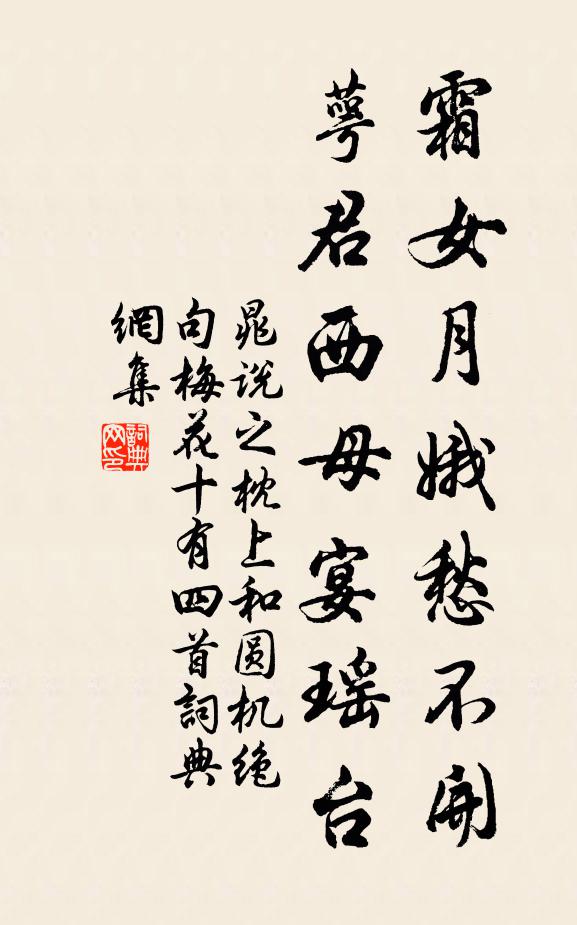 霜女月娥愁不開
萼君西母宴瑶台
晁说之枕上和圆机绝
句梅花十有四首詞典
網集
詞典
网印